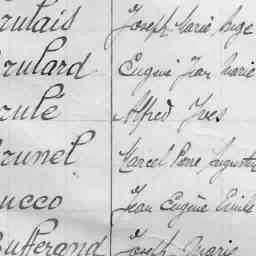 rulais Joseph Marie Ange
rulard Eugène Jean Marie
rulé Alfred Yves
runel Marcel Pierre Auguste
ucco Jean Eugène Emile
ufferand Joseph Marie